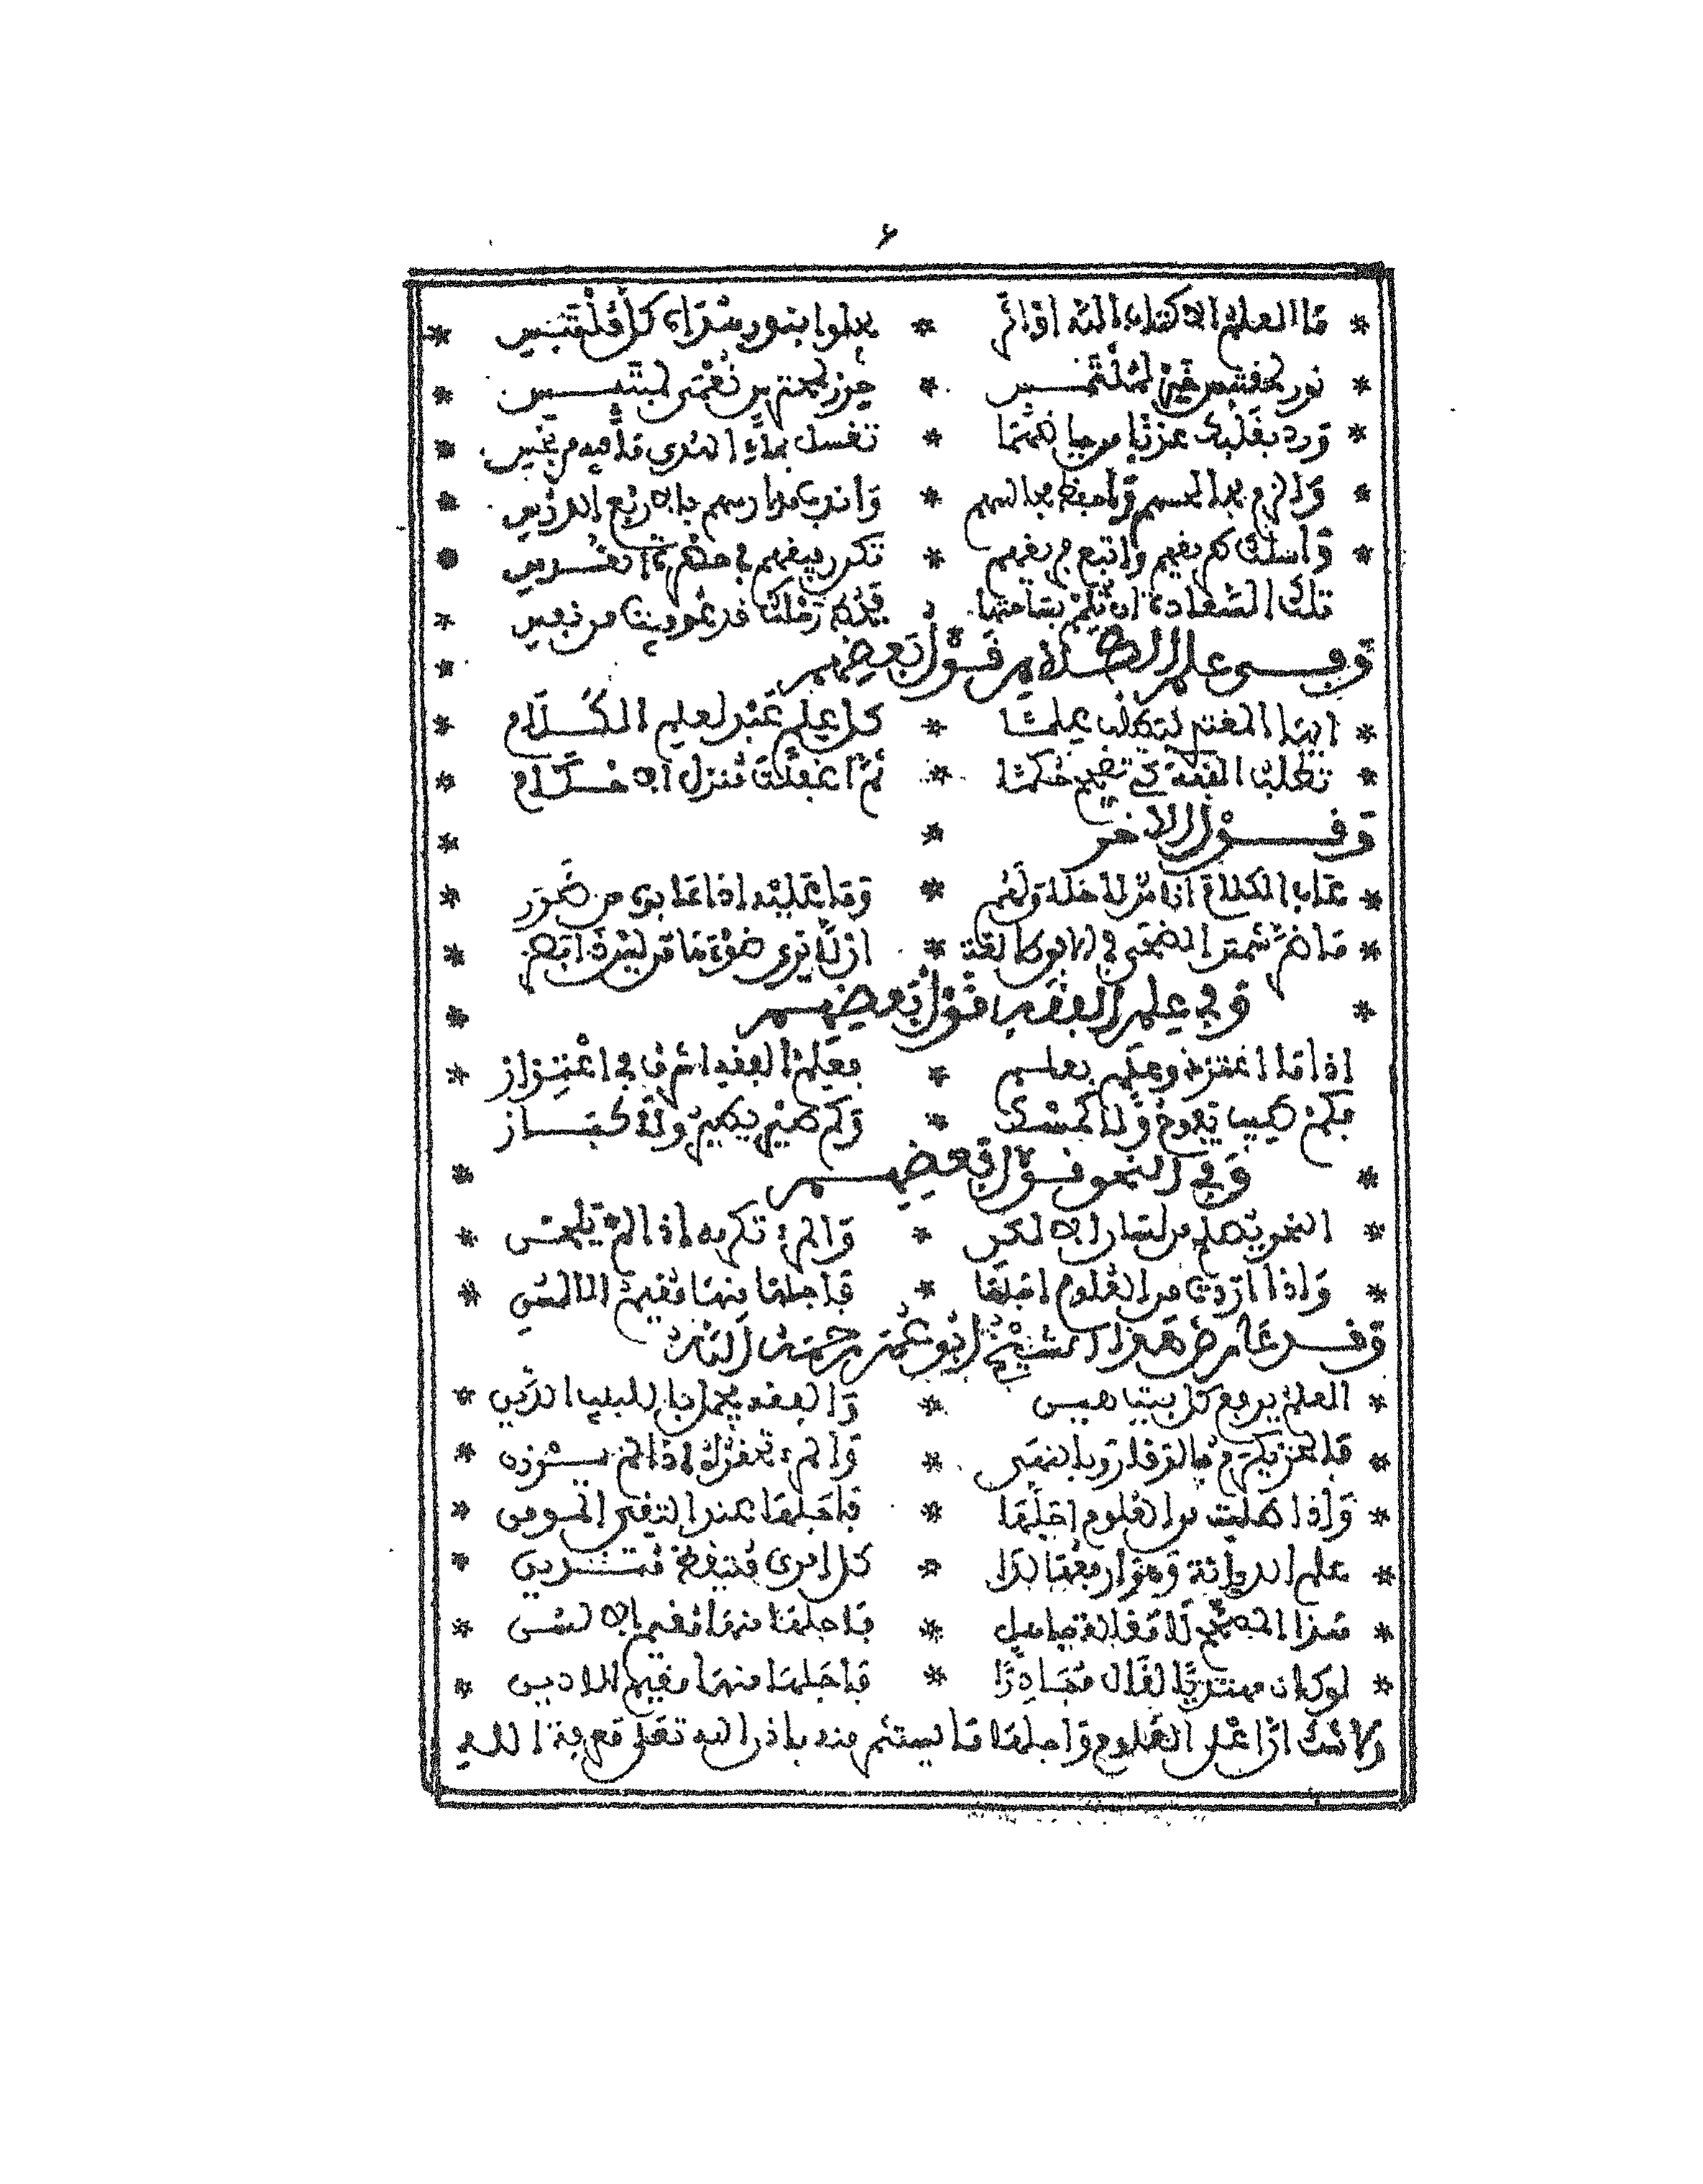 ٦
* ما العلم الا كتاب الله او اثر * يجلوا بنور سناه كل ملتبس *
* نور لمقتبس خير لملتمس * حرز لمحترس نعمى لمبتئس *
* ورد بقلبك عذبا من حياضهما * تغسل بماء الهدى ما فيه من نجس *
* والزم مجالسهم واحفظ مجالسهم * واندب مدارسهم بالاربع الدرس *
* واسلك طريقهم واتبع فريقهم * تكن رفيقهم في حضرة القدس *
تلك السعادة ان تلمم بساحتها * فحط رحلك قد عوفيت من تعس *
وفي علم الكلام قول بعضهم *
* ايها المغتدي لتطلب علما * كل علم عبد لعلم الكلام *
* تطلب الفقه كي تصحح حكما * ثم اغفلت منزل الاحكام *
وقول الاخر * *
* عاب الكلام اناس لا خلاق لهم * وما عليه اذا عابوه من ضرر *
* ما ضر شمس الضحى في الافق طالعة * ان لا يرى ضوءها من ليس ذا بصر *
* وفي علم الفقه قول بعضهم *
اذا ما اعتز ذو علم بعلم * فعلم الفقه اشرف في اعتزاز *
فكم طيب يفوح ولا كمسك * وكم طير يطير ولا كباز
* وفي النحو قول بعضهم *
* النحو يصلح من لسان الالكن * والمرء تكرمه اذا لم يلحن *
* واذا اردت من العلوم اجلها * فاجلها منها مقيم الالسن *
وقد عارض هذا الشيخ ابو عمر رحمه الله
* العلم يرفع كل بيت هين * والفقه يجمل باللبيب الدين *
* والحر يكرم بالوقار وبالنهى * والمرء تحقره اذا لم يرزن *
* واذا طلبت من العلوم اجلها * فاجلها عند التقي المومن *
* علم الديانة وهو ارفعها لدى * كل امرئ متيقظ متدين *
* هذا الصحيح ولا مقالة جاهل * فاجلها منها مقيم الالسن *
* لو كان مهتديا لقال مبادرا * فاجلها منها مقيم الادين *
ولا شك ان اعلى العلوم واجلها ما يستثمر منه باذن الله تعلى معرفة الله